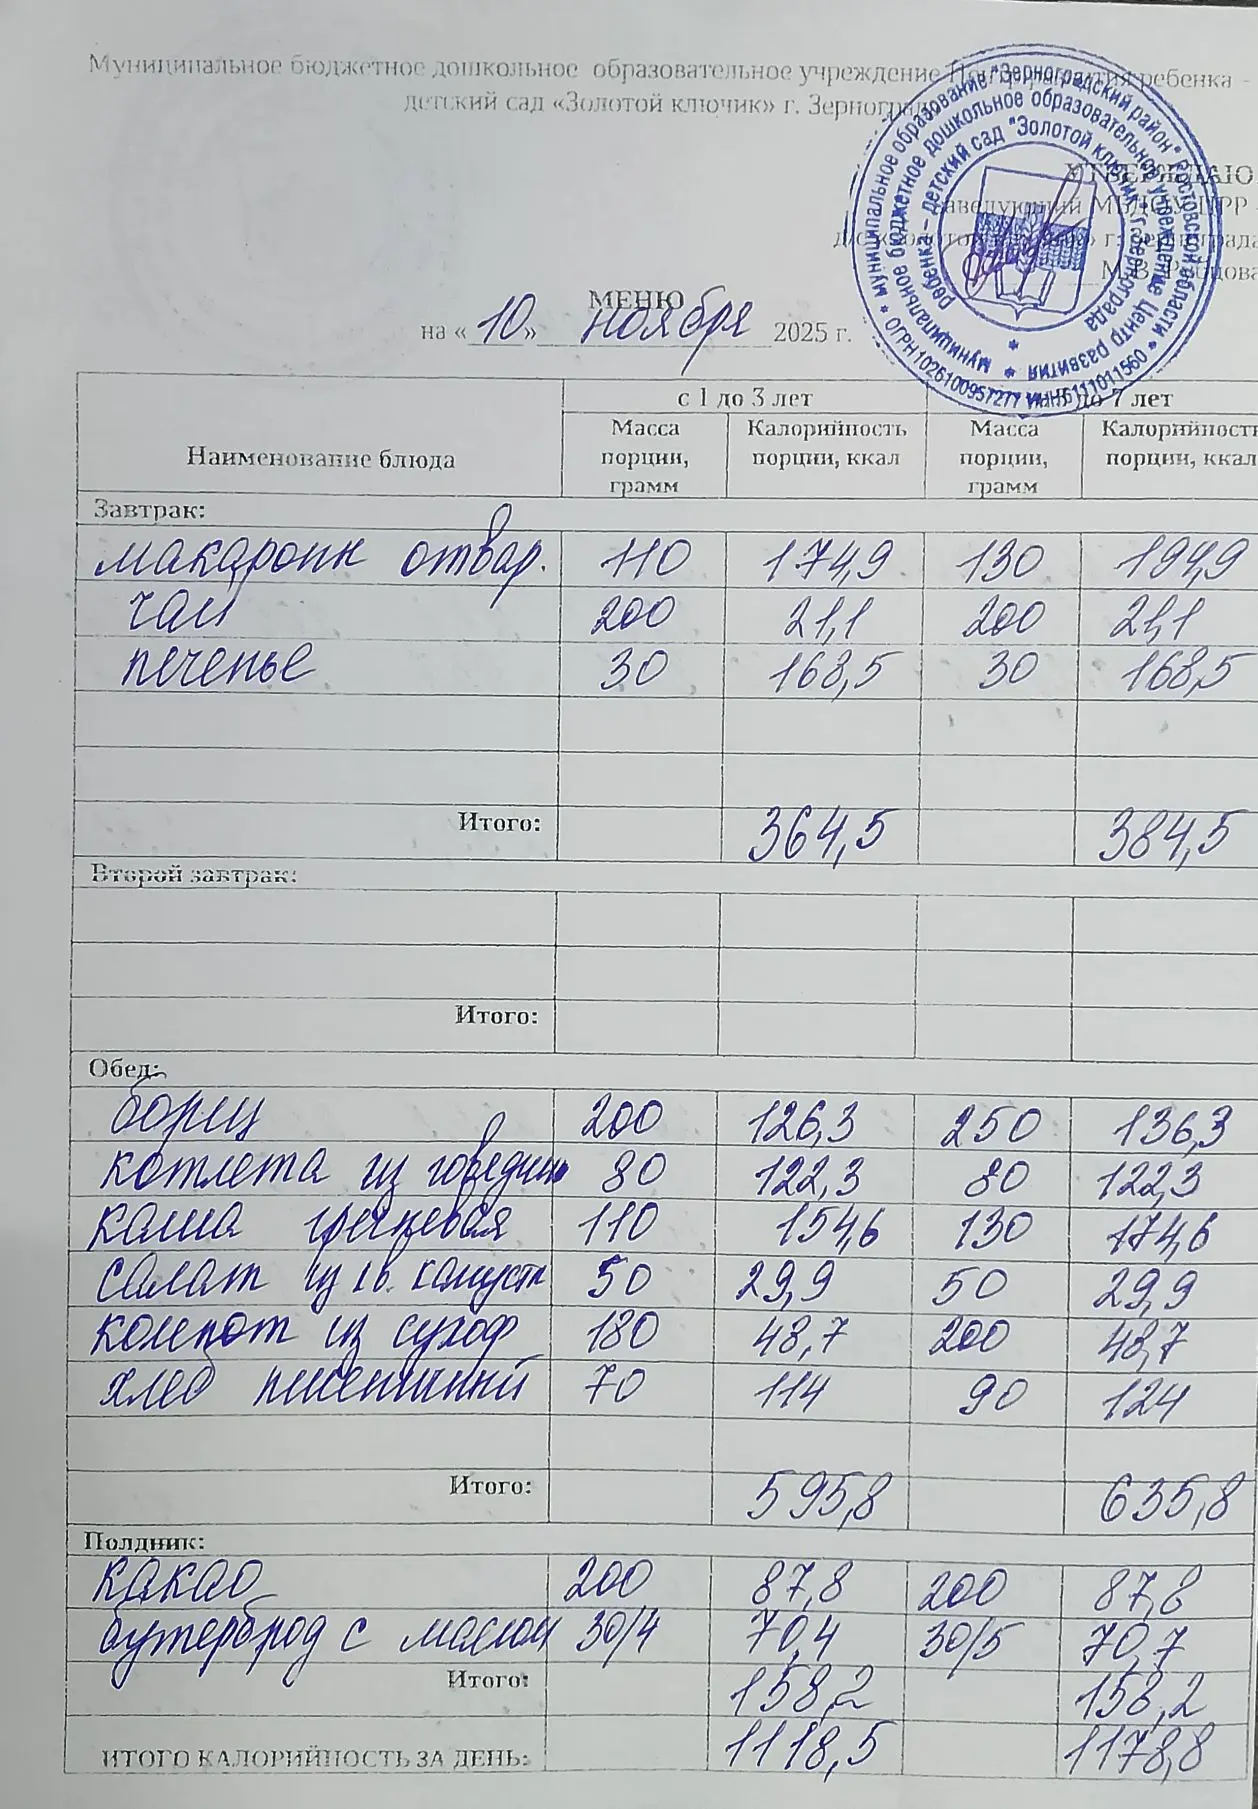 Муниципальное бюджетное дошкольное образовательное учреждение Центр развития ребенка -
детский сад «Золотой ключик» г. Зернограда
УТВЕРЖДАЮ
заведующий МБДОУ ЦРР
д/с «Золотой ключик» г. Зернограда
М.В.
муниципальное образование "Зерноградский район" Ростовской области *
ОГРН 1026100957277 ИНН 6111011560 *
муниципальное бюджетное дошкольное образовательное учреждение Центр развития
ребенка – детский сад "Золотой ключик" г. Зернограда
МЕНЮ
на «10» ноября 2025 г.
Наименование блюда с 1 до 3 лет до 7 лет
Масса порции, грамм Калорийность порции, ккал Масса порции, грамм Калорийность порции, ккал
Завтрак:
макарони отвар. 110 174,9 130 194,9
чай 200 21,1 200 21,1
печенье 30 168,5 30 168,5
Итого: 364,5 384,5
Второй завтрак:
Итого:
Обед:
борщ 200 126,3 250 136,3
котлета из говядины 80 122,3 80 122,3
каша гречневая 110 154,6 130 174,6
салат из св. капусты 50 29,9 50 29,9
компот из сухоф 180 48,7 200 48,7
хлеб пшеничный 70 114 90 124
Итого: 595,8 635,8
Полдник:
какао 200 87,8 200 87,8
бутерброд с маслом 30/4 70,4 30/5 70,7
Итого: 158,2 158,2
ИТОГО КАЛОРИЙНОСТЬ ЗА ДЕНЬ: 1118,5 1178,8